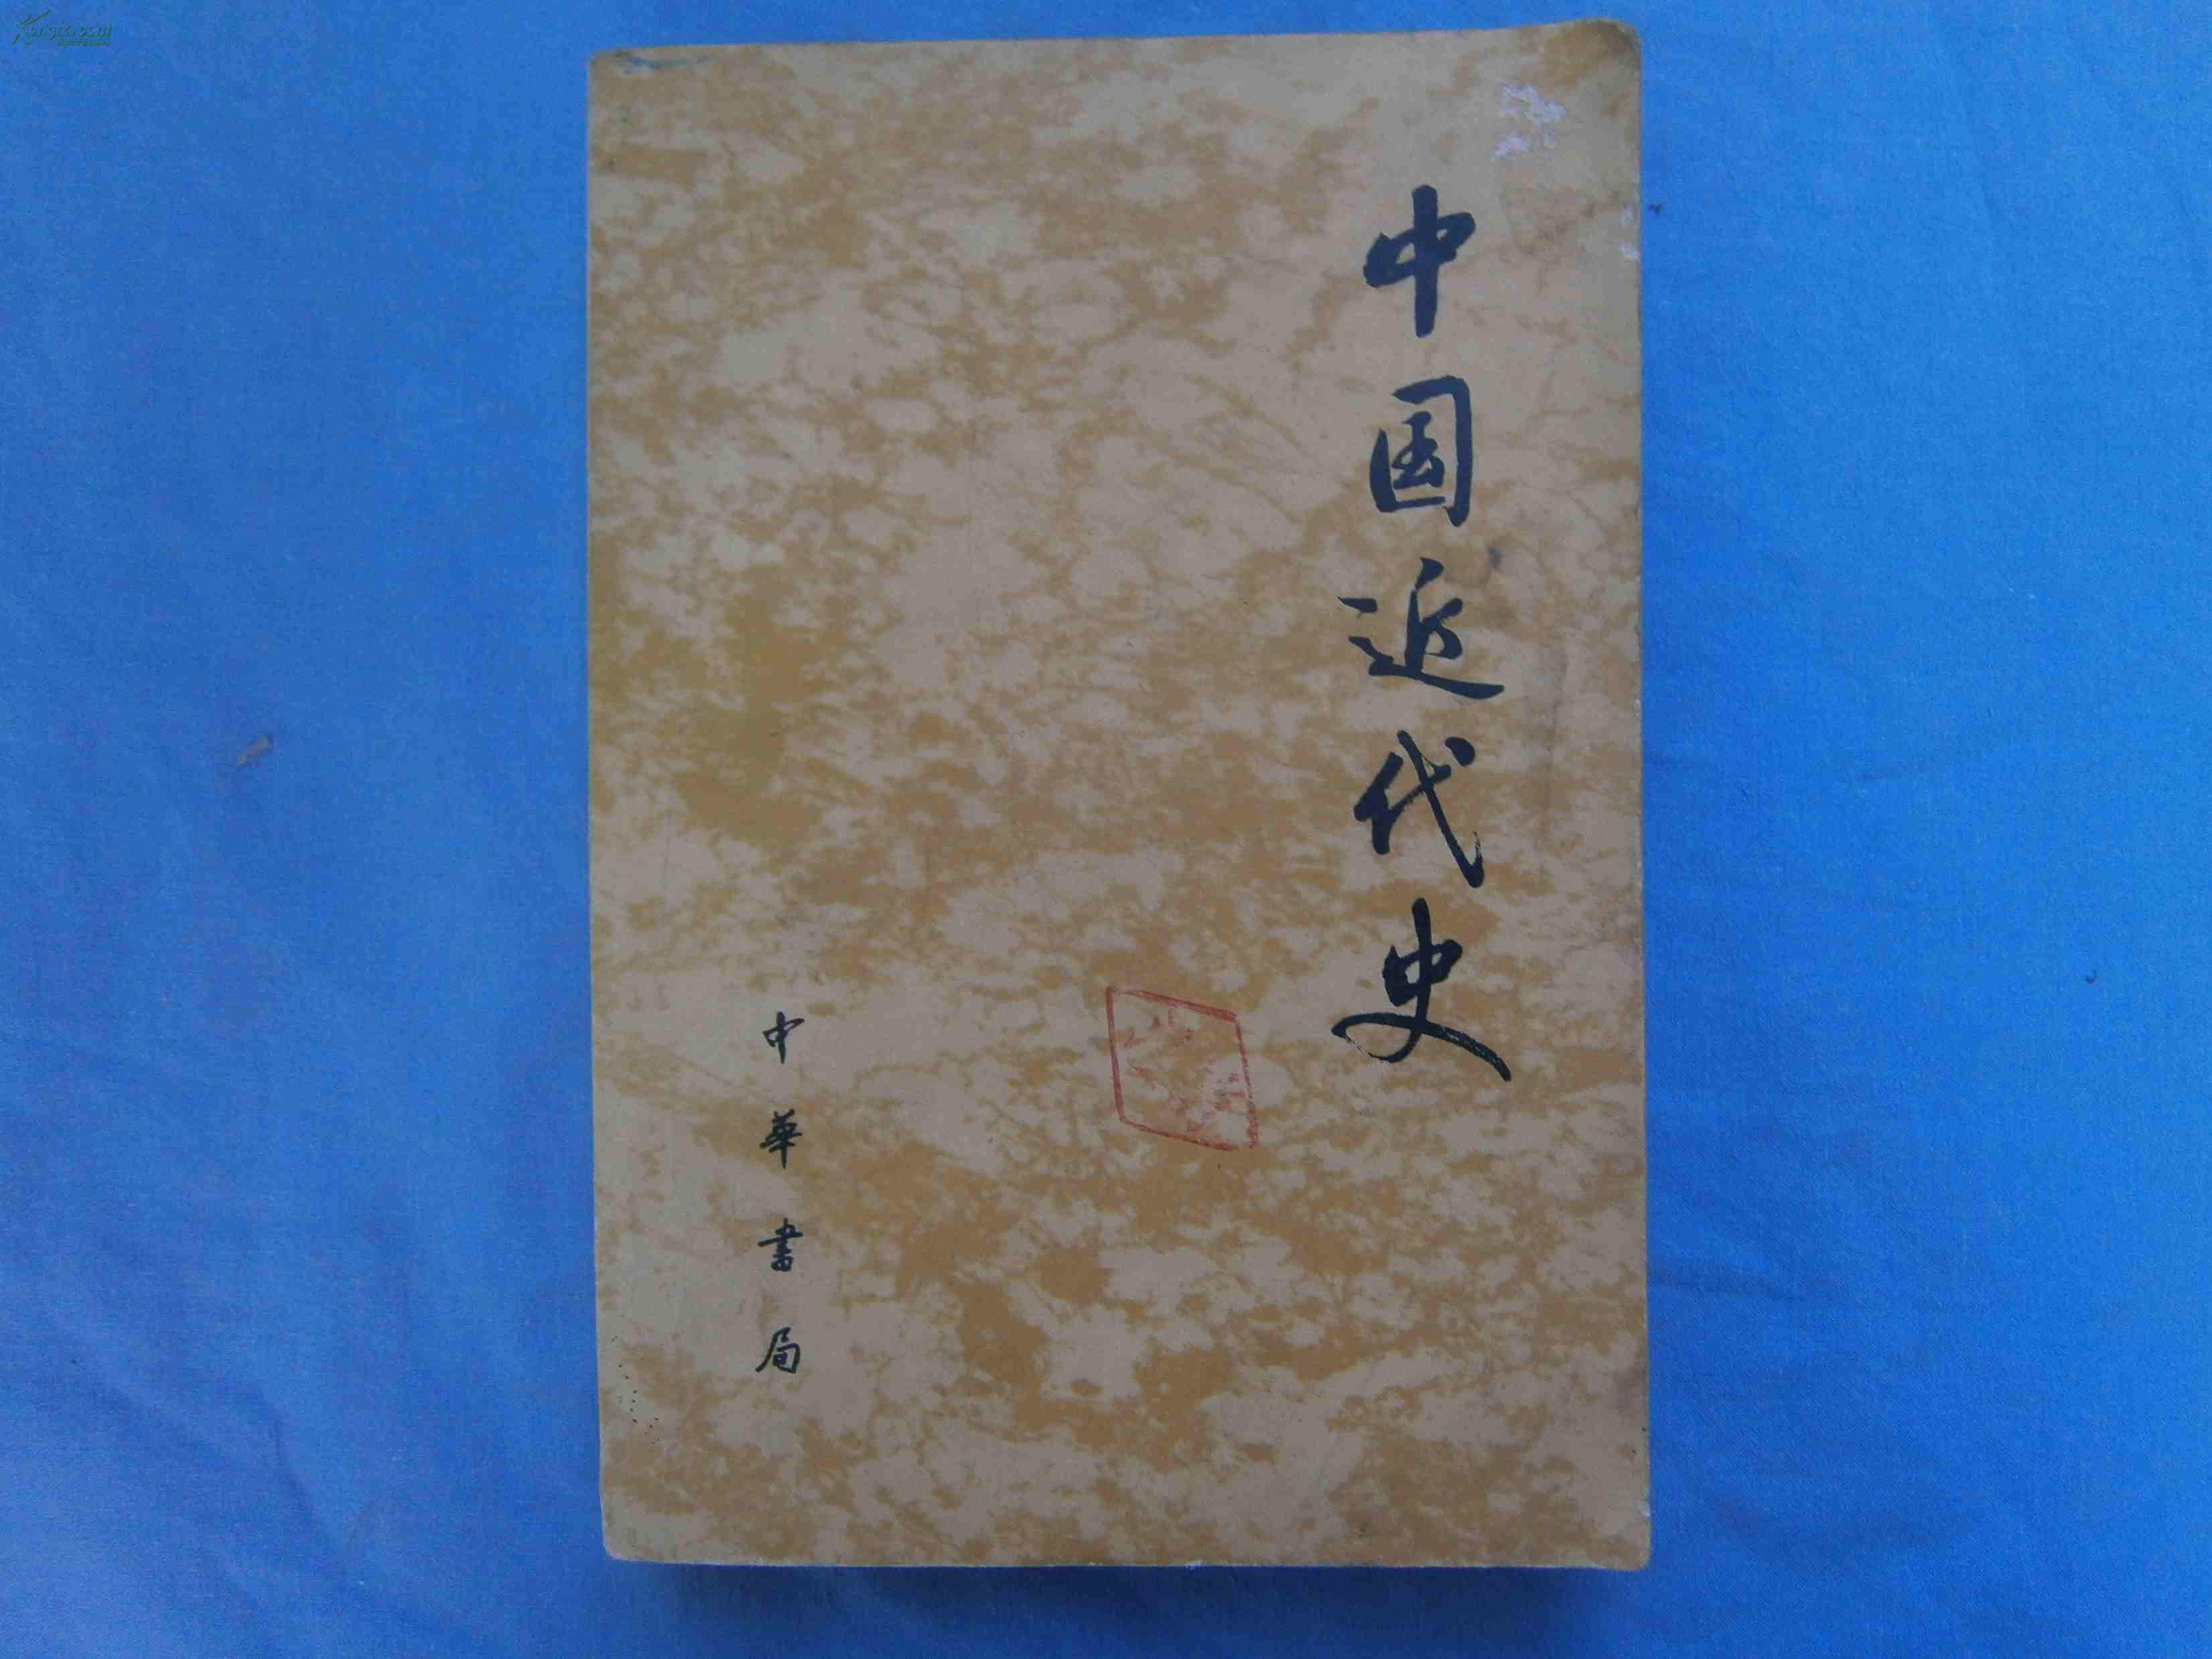 中国近代史
中華書局
Kongfz.com